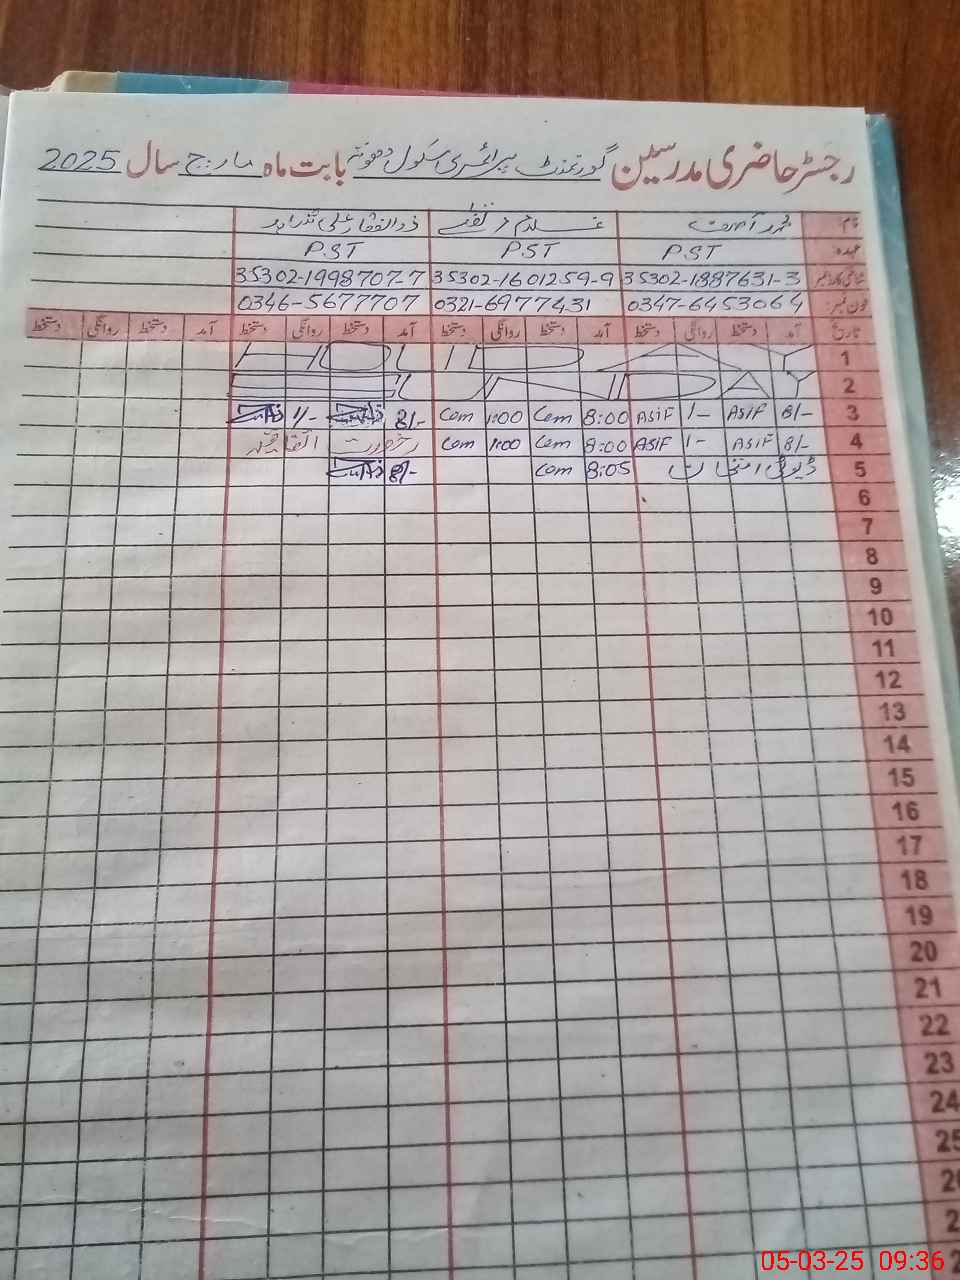 رجسٹر حاضری مدرسین گورنمنٹ پرائمری سکول بابت ماہ مارچ سال 2025
نام محمد آصف غلام ذوالفقار علی
عہدہ P.ST P.ST P.ST
شناختی کارڈ نمبر 35302-1887631-3 35302-1601259-9 35302-1998707-7
فون نمبر 0347-6453064 0321-6977431 0346-5677707
تاریخ آمد دستخط روانگی دستخط آمد دستخط روانگی دستخط آمد دستخط روانگی دستخط آمد دستخط روانگی دستخط
1
2
3 8/- ASIF 1/- ASIF 8:00 1:00 8/- 1/-
4 8/- ASIF 1/- ASIF 8:00 1:00 رخصت اتفاقیہ
5 ڈیوٹی امتحانات 8:05 8/-
6
7
8
9
10
11
12
13
14
15
16
17
18
19
20
21
22
23
24
25
05-03-25 09:36